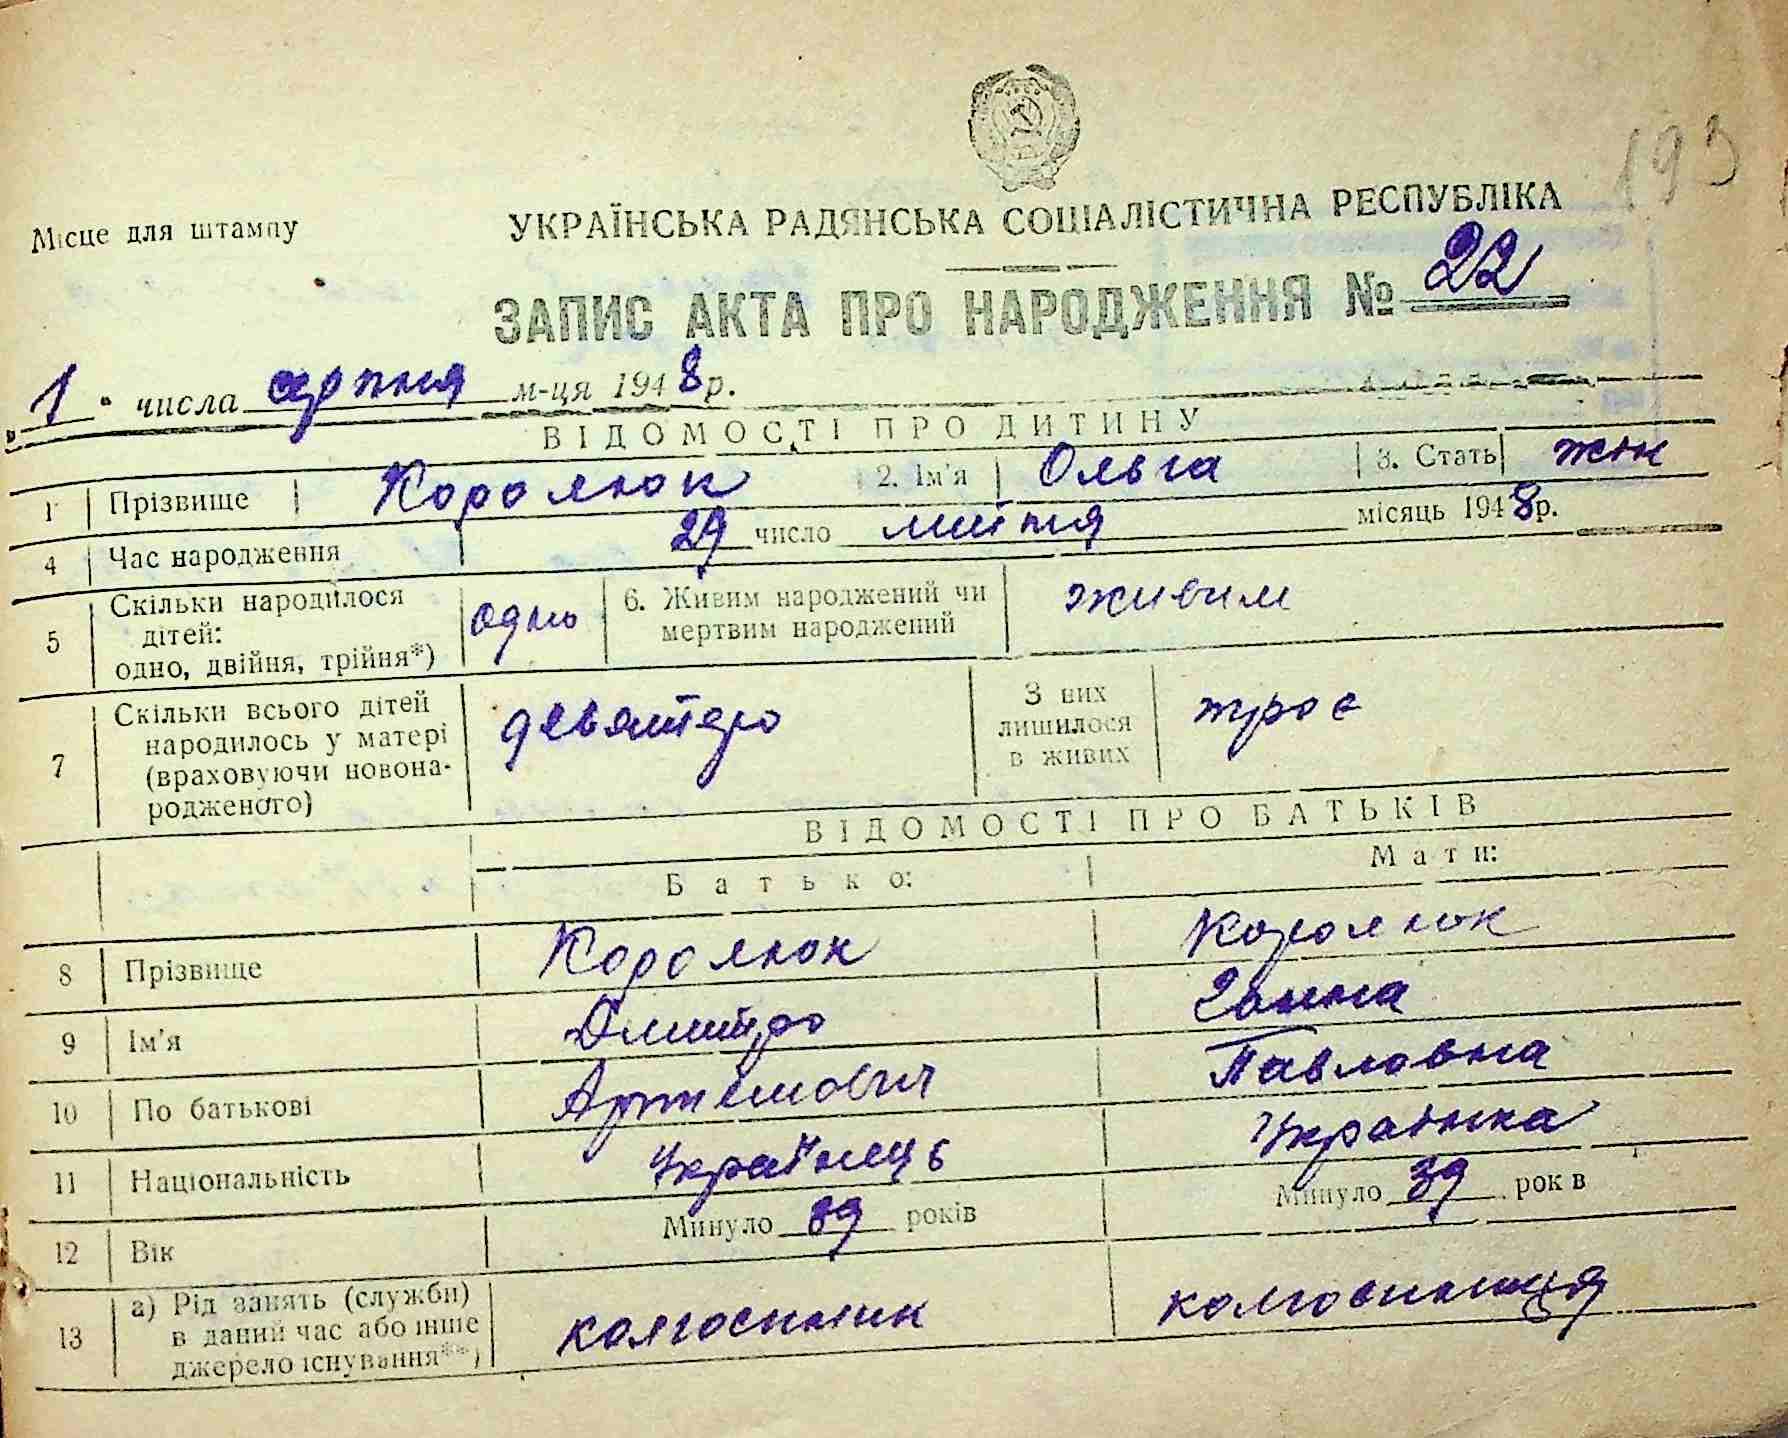 193
Місце для штампу
УКРАЇНСЬКА РАДЯНСЬКА СОЦІАЛІСТИЧНА РЕСПУБЛІКА
ЗАПИС АКТА ПРО НАРОДЖЕННЯ № 22
1 числа серпня м-ця 1948 р.
ВІДОМОСТІ ПРО ДИТИНУ
1 Прізвище Королюк 2. Ім'я Ольга 3. Стать жін
4 Час народження 29 число липня місяць 1948 р.
5 Скільки народилося дітей: одно, двійня, трійня*) одно 6. Живим народжений чи мертвим народжений живим
7 Скільки всього дітей народилось у матері (враховуючи новонародженого) девятеро З них лишилося в живих троє
ВІДОМОСТІ ПРО БАТЬКІВ
Батько: Мати:
8 Прізвище Королюк Королюк
9 Ім'я Дмитро Ганна
10 По батькові Артемович Павловна
11 Національність Українець Українка
12 Вік Минуло 39 років Минуло 39 рок в
13 а) Рід занять (служби) в даний час або інше джерело існування**) колгоспник колгоспниця